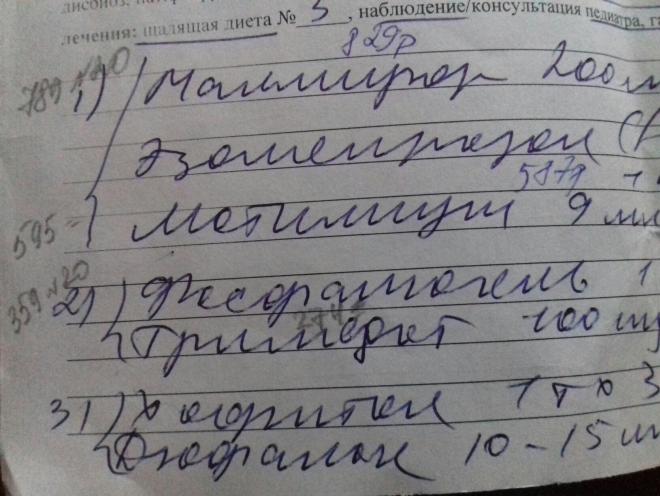 лечения: щадящая диета № 5, наблюдение/консультация педиатра, га
829р
789 №40
1) Маалирор 200 м
Эзомепразол (
587р
595
Мотилиум 9 мл
359 №20
2) Фосфалюгель 1
274
Тримедат 100 мг
3) Хофитол 1 т х 3
Дюфалак 10-15 м